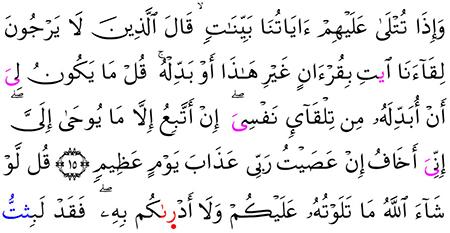 وَإِذَا تُتْلَىٰ عَلَيْهِمْ ءَايَاتُنَا بَيِّنَٰتٍۙ قَالَ ٱلَّذِينَ لَا يَرْجُونَ
لِقَآءَنَا ٱيتِ بِقُرْءَانٍ غَيْرِ هَٰذَا أَوْ بَدِّلْهُۚ قُلْ مَا يَكُونُ لِىَ
أَنْ أُبَدِّلَهُۥ مِن تِلْقَآيِٕ نَفْسِىَۖ إِنْ أَتَّبِعُ إِلَّا مَا يُوحَىٰ إِلَىَّۖ
إِنِّىَ أَخَافُ إِنْ عَصَيْتُ رَبِّى عَذَابَ يَوْمٍ عَظِيمٍ ١٥ قُل لَّوْ
شَآءَ ٱللَّهُ مَا تَلَوْتُهُۥ عَلَيْكُمْ وَلَا أَدْرِىٰكُم بِهِۦۖ فَقَدْ لَبِثتُّ